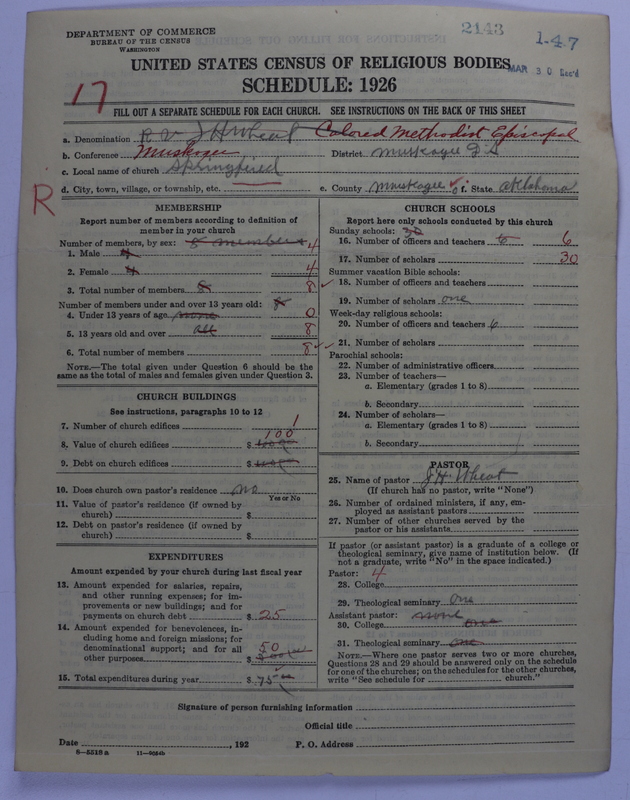 DEPARTMENT OF COMMERCE
BUREAU OF THE CENSUS
WASHINGTON
2143
1-47
UNITED STATES CENSUS OF RELIGIOUS BODIES
MAR 30 Rec'd
SCHEDULE: 1926
17
FILL OUT A SEPARATE SCHEDULE FOR EACH CHURCH. SEE INSTRUCTIONS ON THE BACK OF THIS SHEET
a. Denomination R v J H Wheat Colored Methodist Episcopal
b. Conference Muskogee District Muskogee DS
c. Local name of church Springfield
d. City, town, village, or township, etc. e. County Muskogee f. State Oklahoma
R
MEMBERSHIP
Report number of members according to definition of
member in your church
Number of members, by sex: 8 members
1. Male 4 4
2. Female 4 4
3. Total number of members 8 8
Number of members under and over 13 years old:
4. Under 13 years of age none 0
5. 13 years old and over all 8
6. Total number of members 8
NOTE.—The total given under Question 6 should be the
same as the total of males and females given under Question 3.
CHURCH BUILDINGS
See instructions, paragraphs 10 to 12
7. Number of church edifices 1
8. Value of church edifices $ 100
9. Debt on church edifices $
10. Does church own pastor's residence no
Yes or No
11. Value of pastor's residence (if owned by
church) $
12. Debt on pastor's residence (if owned by
church) $
EXPENDITURES
Amount expended by your church during last fiscal year
13. Amount expended for salaries, repairs,
and other running expenses; for im-
provements or new buildings; and for
payments on church debt $ 25
14. Amount expended for benevolences, in-
cluding home and foreign missions; for
denominational support; and for all
other purposes $ 50
15. Total expenditures during year $ 75
CHURCH SCHOOLS
Report here only schools conducted by this church
Sunday schools: 30
16. Number of officers and teachers 6 6
17. Number of scholars 30
Summer vacation Bible schools:
18. Number of officers and teachers
19. Number of scholars one
Week-day religious schools:
20. Number of officers and teachers 6
21. Number of scholars
Parochial schools:
22. Number of administrative officers
23. Number of teachers—
a. Elementary (grades 1 to 8)
b. Secondary
24. Number of scholars—
a. Elementary (grades 1 to 8)
b. Secondary
PASTOR
25. Name of pastor J H Wheat
(If church has no pastor, write "None")
26. Number of ordained ministers, if any, em-
ployed as assistant pastors
27. Number of other churches served by the
pastor or his assistants
If pastor (or assistant pastor) is a graduate of a college or
theological seminary, give name of institution below. (If
not a graduate, write "No" in the space indicated.)
Pastor: 4
28. College
29. Theological seminary one
Assistant pastor: none
30. College one
31. Theological seminary one
NOTE.—Where one pastor serves two or more churches,
Questions 28 and 29 should be answered only on the schedule
for one of the churches; on the schedules for the other churches,
write "See schedule for church."
Signature of person furnishing information
Official title
Date , 192 P. O. Address
8-5518 a 11-9054b